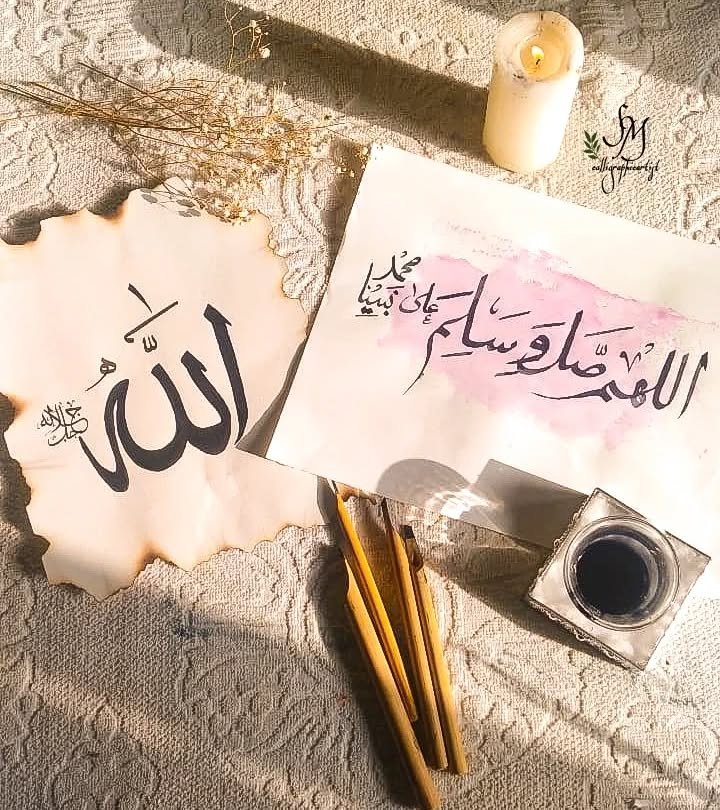 الله
جل جلاله
اللهم صل وسلم
على نبينا
محمد
SM
calligraphicartist